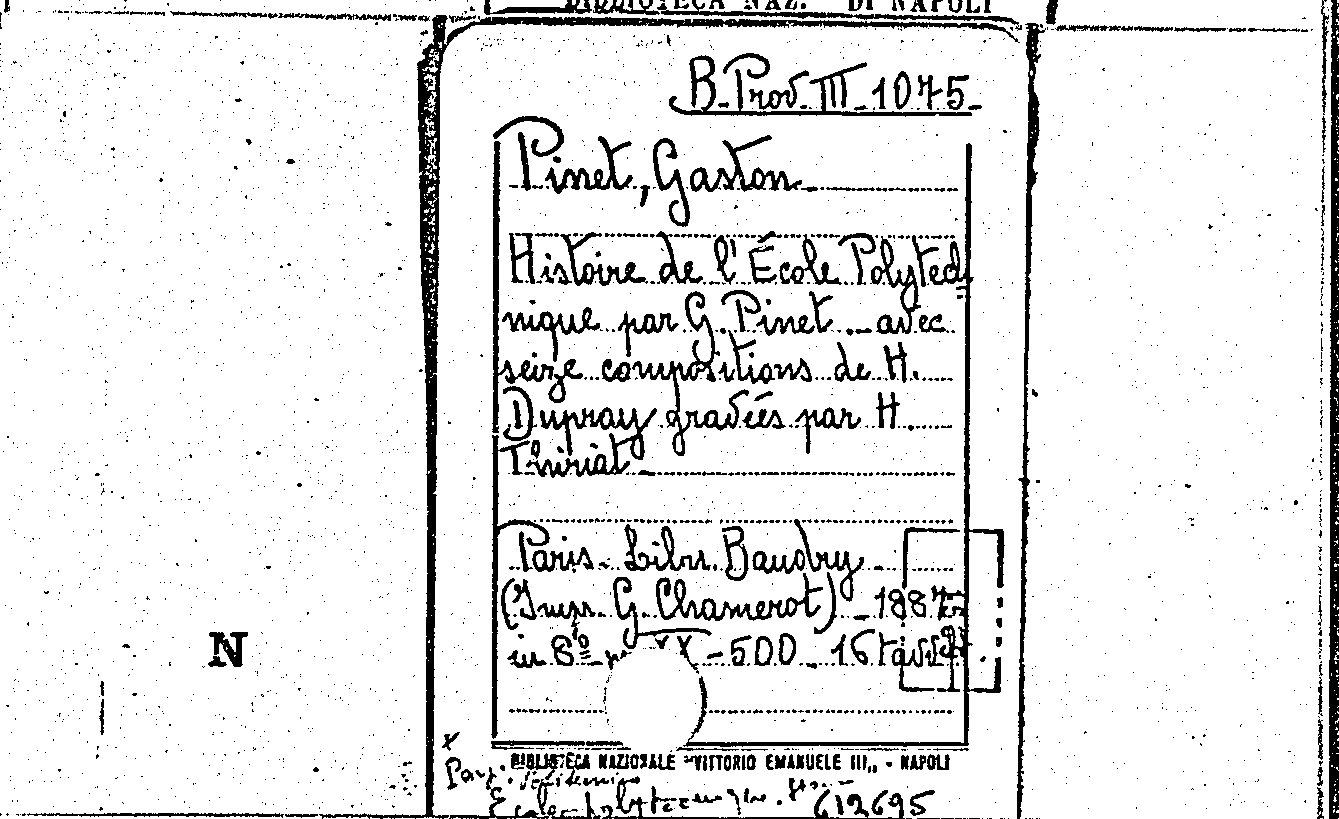 BIBLIOTECA NAZ. DI NAPOLI
B. Prov. III-1075-
Pinet, Gaston-
Histoire de l'École Polytech
nique par G. Pinet .- avec
seize compositions de H.
Dupray gravées par H.
Thiriat-
Paris. Libr. Baudry.
(Imp. G. Chamerot) - 1887
in 8º XX-500. 16 tavv.
N
BIBLIOTECA NAZIONALE "VITTORIO EMANUELE III„ - NAPOLI
612695